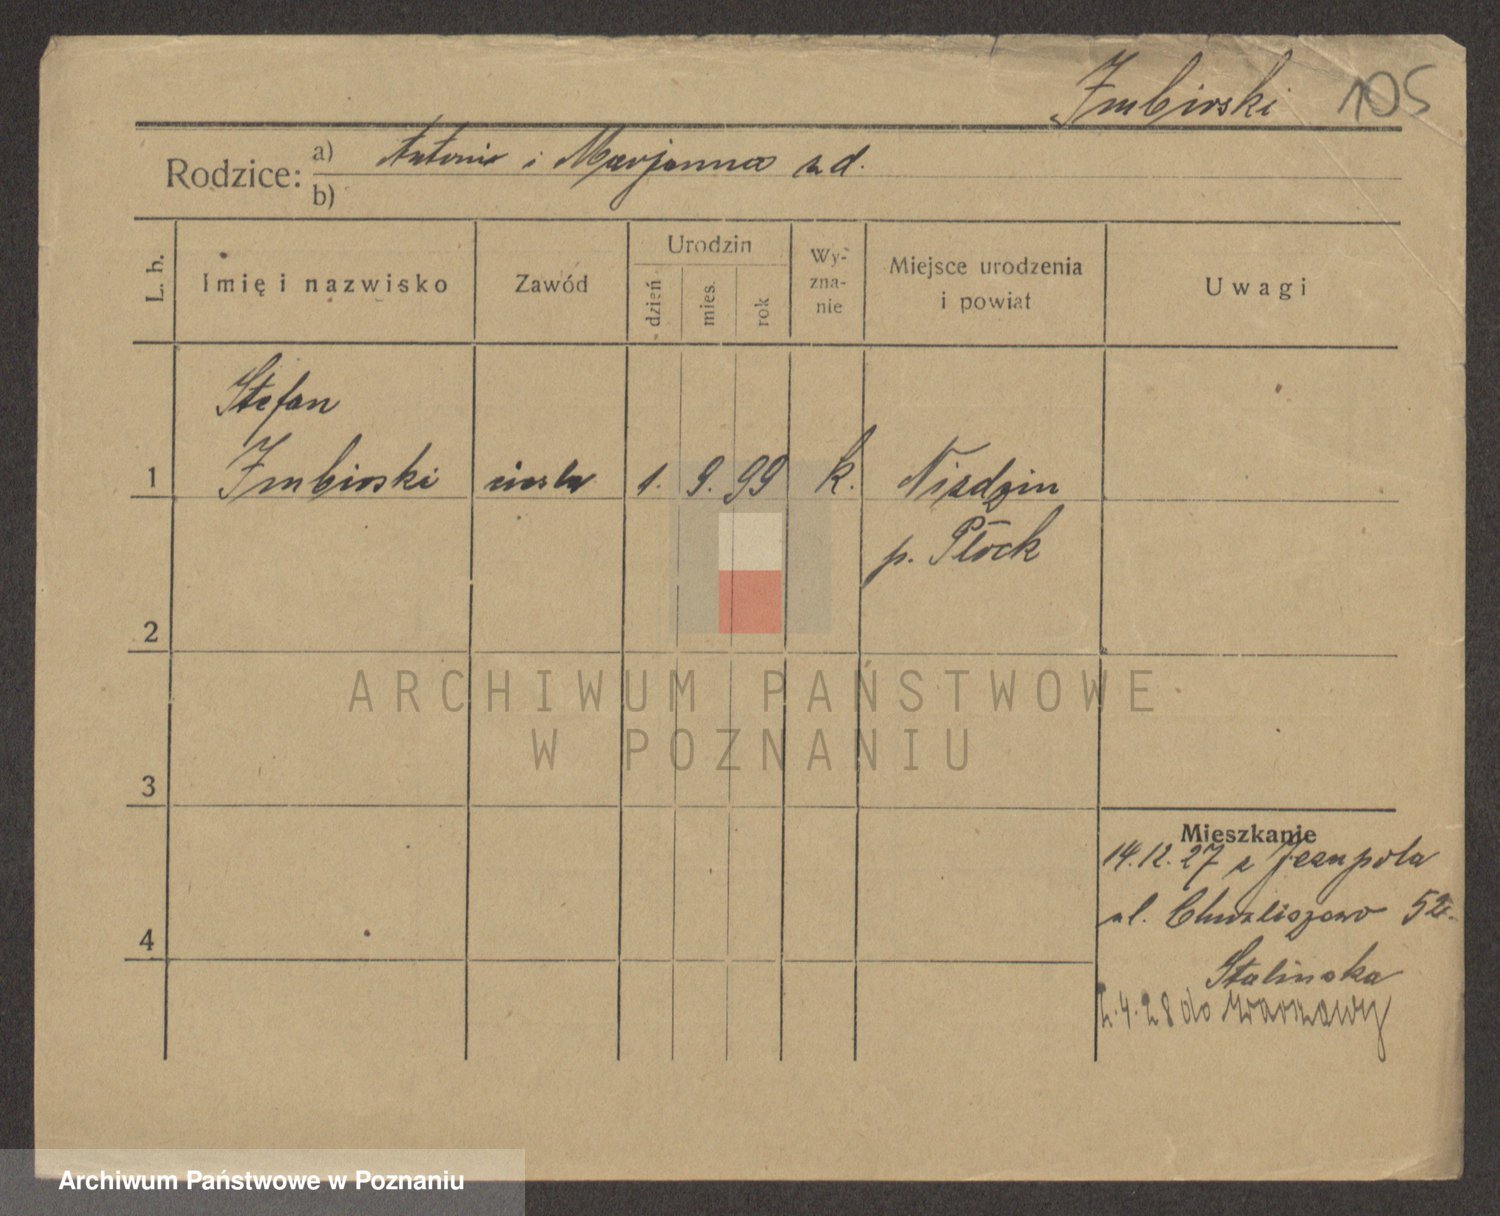 Imbirski 105
Rodzice: a) Antoni i Marjanna z d.
b)
L. b. Imię i nazwisko Zawód Urodzin dzień mies. rok Wy-zna-nie Miejsce urodzenia i powiat Uwagi
Stefan
1 Imbirski cieśla 1. 9. 99 k. Nizdzin
p. Płock
2
3
4
Mieszkanie
14.12.27 z Jezupola
ul. Chwaliszewo 52
Stalinska
2.4.28 do Warszawy
ARCHIWUM PAŃSTWOWE
W POZNANIU
Archiwum Państwowe w Poznaniu